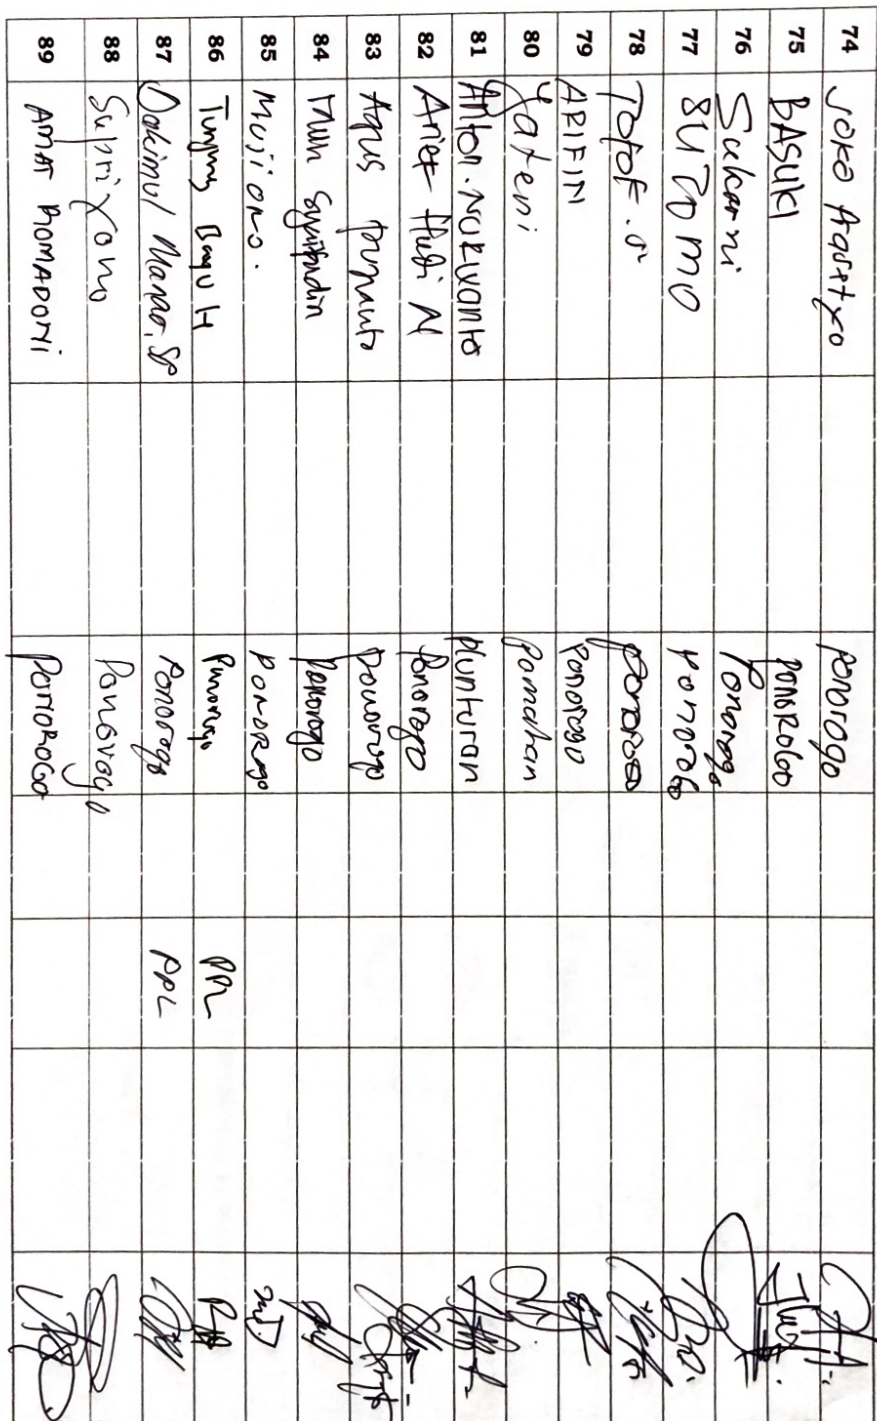 74 Joko Prasetyo Ponorogo
75 BASUKI PONOROGO
76 Sukarni Ponorogo
77 SUTOMO Ponorogo
78 TOTOK . S Ponorogo
79 ARIFIN Ponorogo
80 Yateni Pomahan
81 Anton. Nurwanto Plunturan
82 Arief Hudi N Ponorogo
83 Agus Ponorogo
84 Muh Ponorogo
85 Mujiono. PONOROGO
86 Bayu H Ponorogo PPL
87 Ponorogo PPL
88 Supriyono Ponorogo
89 AMAT ROMADONI PONOROGO